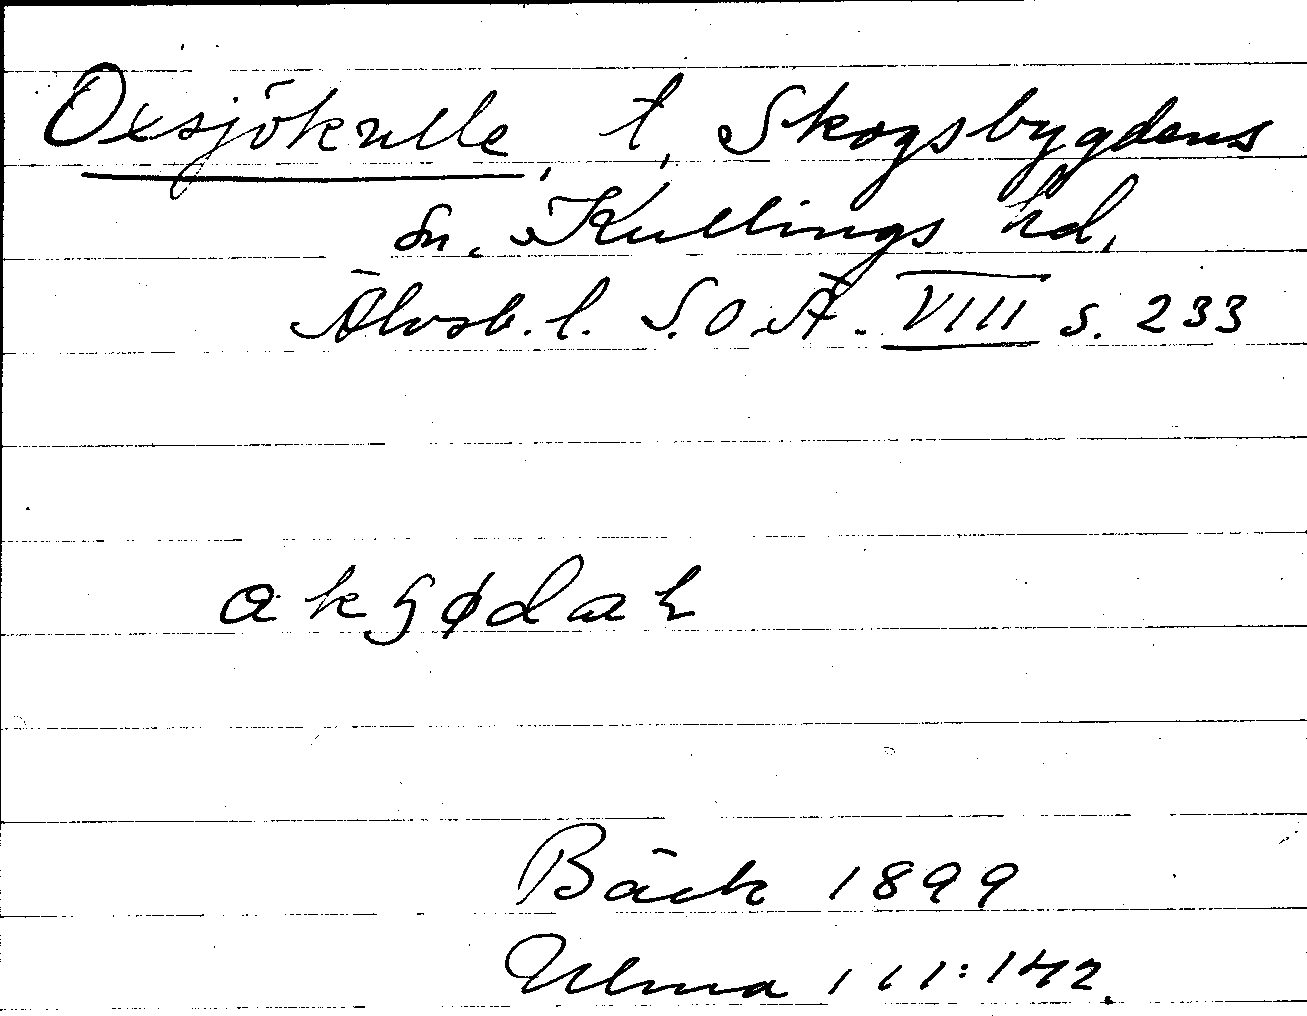 Oxsjökulle, t, Skogsbygdens
sn. Kullings hd,
Älvsb. l. S.O.Ä. VIII s. 233
Bäck 1899
Ulma 111:142.